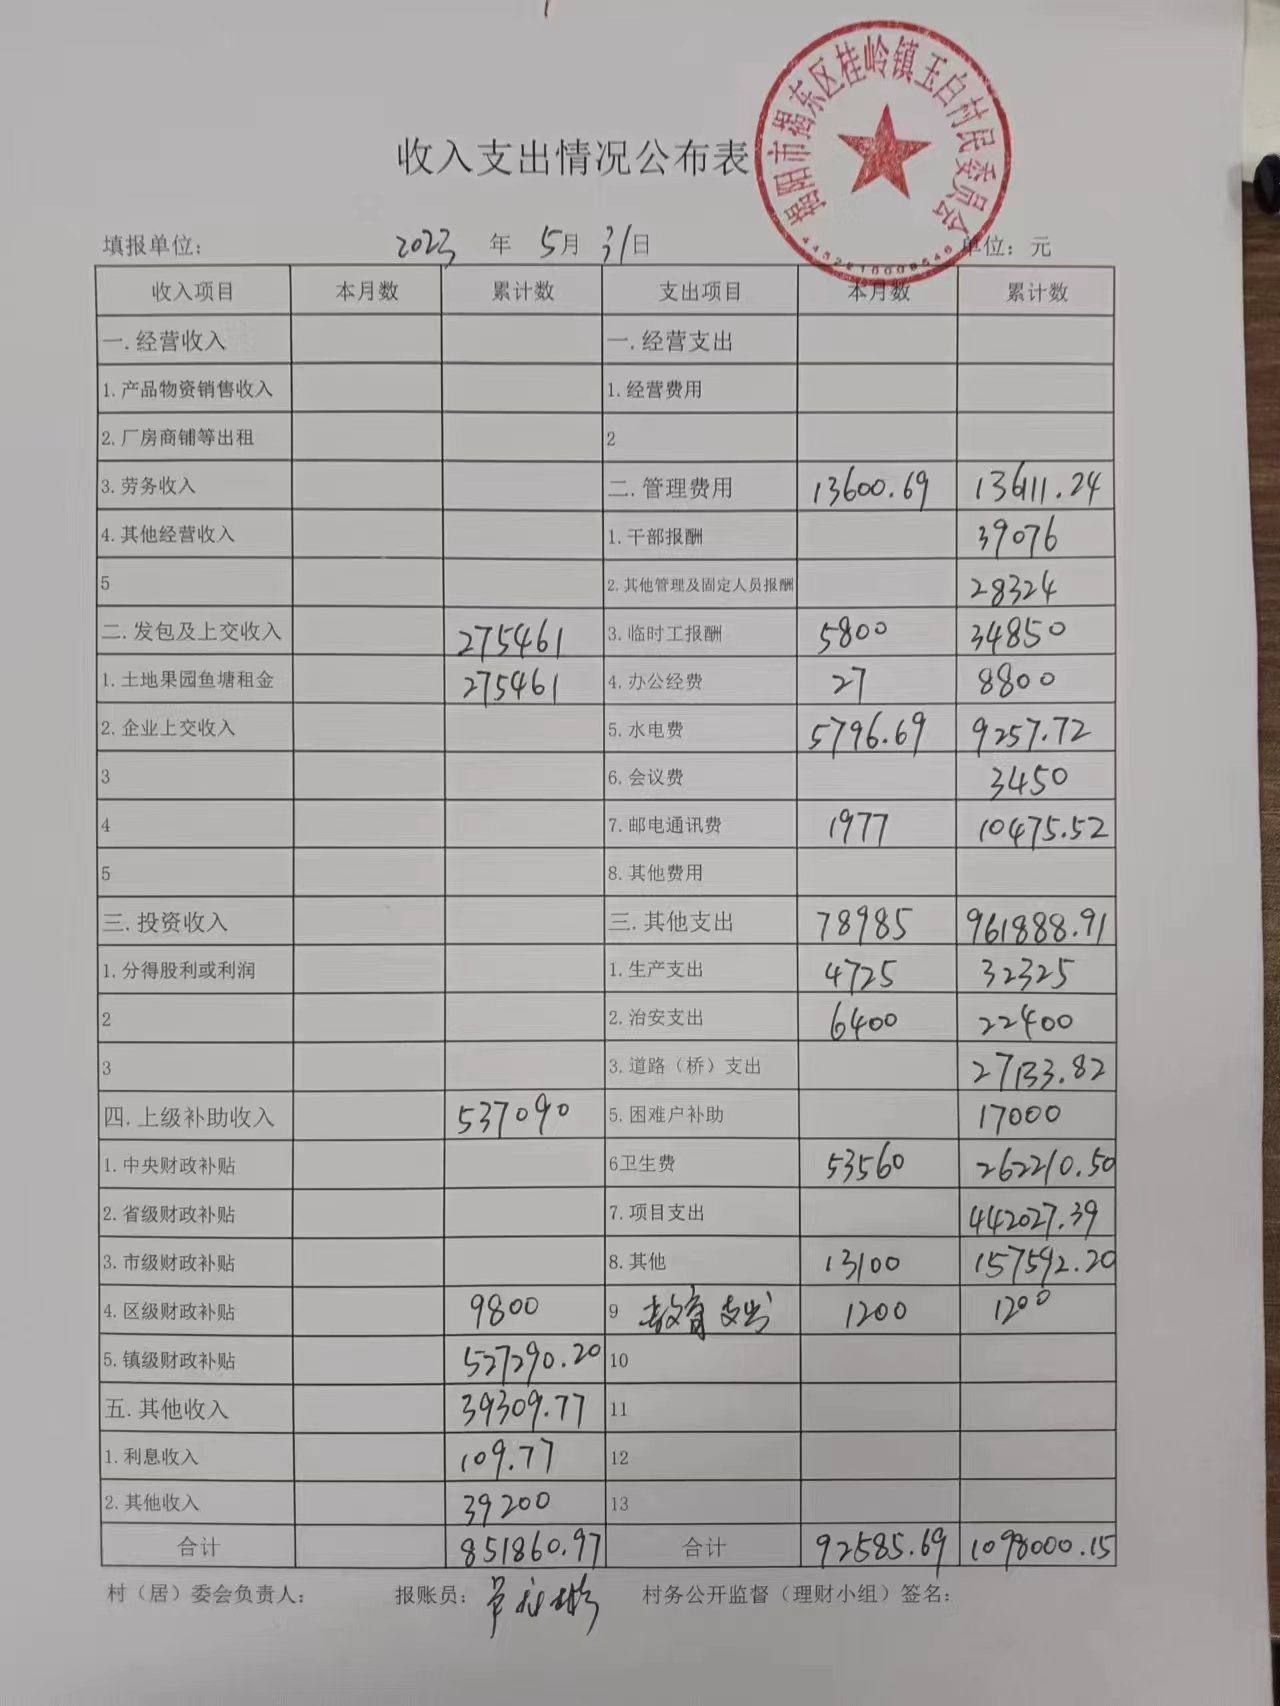 收入支出情况公布表
揭阳市揭东区桂岭镇玉白村民委员会
填报单位： 2023 年 5月 31日 单位：元
收入项目 本月数 累计数 支出项目 本月数 累计数
一.经营收入 一.经营支出
1.产品物资销售收入 1.经营费用
2.厂房商铺等出租 2
3.劳务收入 二.管理费用 13600.69 136111.24
4.其他经营收入 1.干部报酬 39076
5 2.其他管理及固定人员报酬 28324
二.发包及上交收入 275461 3.临时工报酬 5800 34850
1.土地果园鱼塘租金 275461 4.办公经费 27 8800
2.企业上交收入 5.水电费 5796.69 9257.72
3 6.会议费 3450
4 7.邮电通讯费 1977 10475.52
5 8.其他费用
三.投资收入 三.其他支出 78985 961888.91
1.分得股利或利润 1.生产支出 4725 32325
2 2.治安支出 6400 22400
3 3.道路（桥）支出 27133.82
四.上级补助收入 537090 5.困难户补助 17000
1.中央财政补贴 6卫生费 53560 262210.50
2.省级财政补贴 7.项目支出 442027.39
3.市级财政补贴 8.其他 13100 157592.20
4.区级财政补贴 9800 9 教育支出 1200 1200
5.镇级财政补贴 527290.20 10
五.其他收入 39309.77 11
1.利息收入 109.77 12
2.其他收入 39200 13
合计 851860.97 合计 92585.69 1098000.15
村（居）委会负责人： 报账员： 村务公开监督（理财小组）签名：